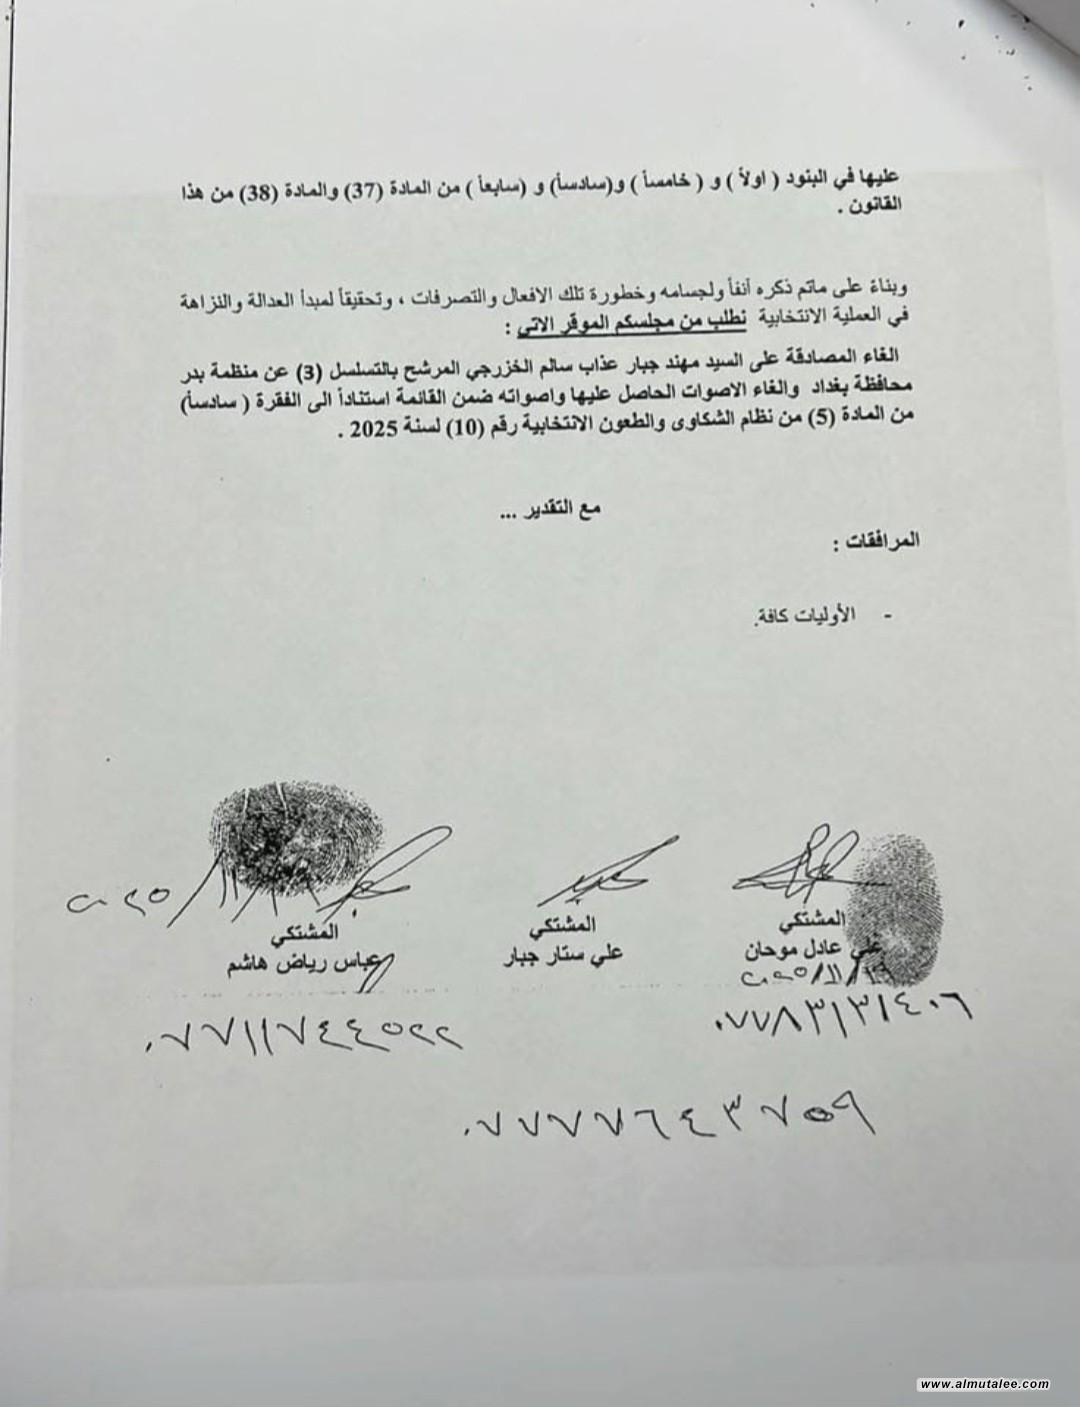 عليها في البنود ( اولاً ) و ( خامساً ) و(سادساً) و (سابعاً ) من المادة (37) والمادة (38) من هذا
القانون .
وبناءً على ماتم ذكره أنفاً ولجسامه وخطورة تلك الافعال والتصرفات ، وتحقيقاً لمبدأ العدالة والنزاهة
في العملية الانتخابية نطلب من مجلسكم الموقر الاتي :
الغاء المصادقة على السيد مهند جبار عذاب سالم الخزرجي المرشح بالتسلسل (3) عن منظمة بدر
محافظة بغداد والغاء الاصوات الحاصل عليها واصواته ضمن القائمة استناداً الى الفقرة ( سادساً)
من المادة (5) من نظام الشكاوى والطعون الانتخابية رقم (10) لسنة 2025 .
مع التقدير ...
المرافقات :
- الأوليات كافة.
المشتكي
علي عادل موحان
المشتكي
علي ستار جبار
المشتكي
عباس رياض هاشم
٠٧٧٨٣١٣١٤٠٦
٠٧٧١١٧٤٤٥٢٢
٠٧٧٧٧٦٤٣٧٥٩
www.almutalee.com